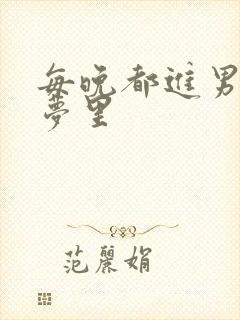 每晚都進男
夢里
范麗娟